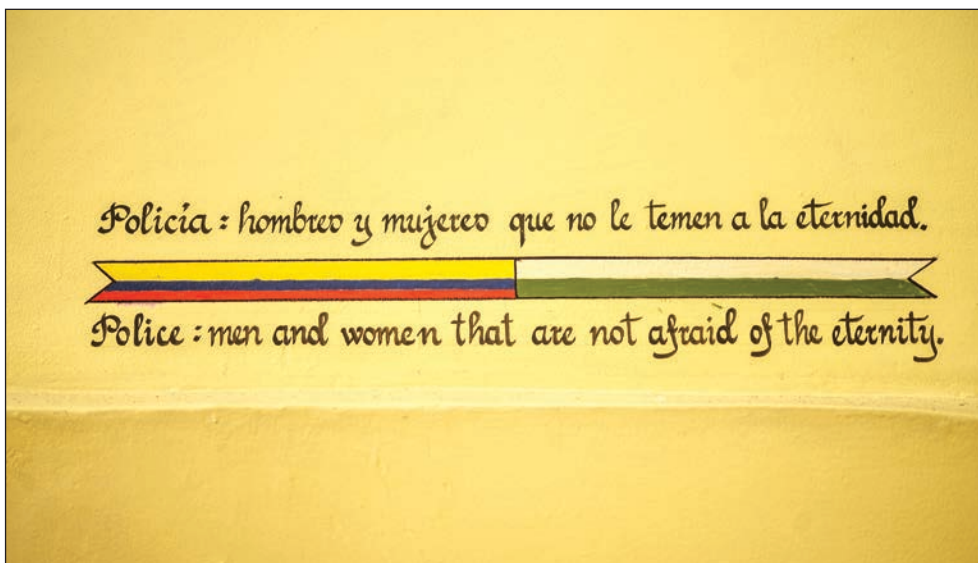 Policía: hombres y mujeres que no le temen a la eternidad.
Police: men and women that are not afraid of the eternity.